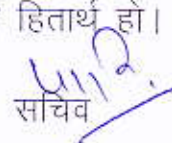 हितार्थ हो।
सचिव